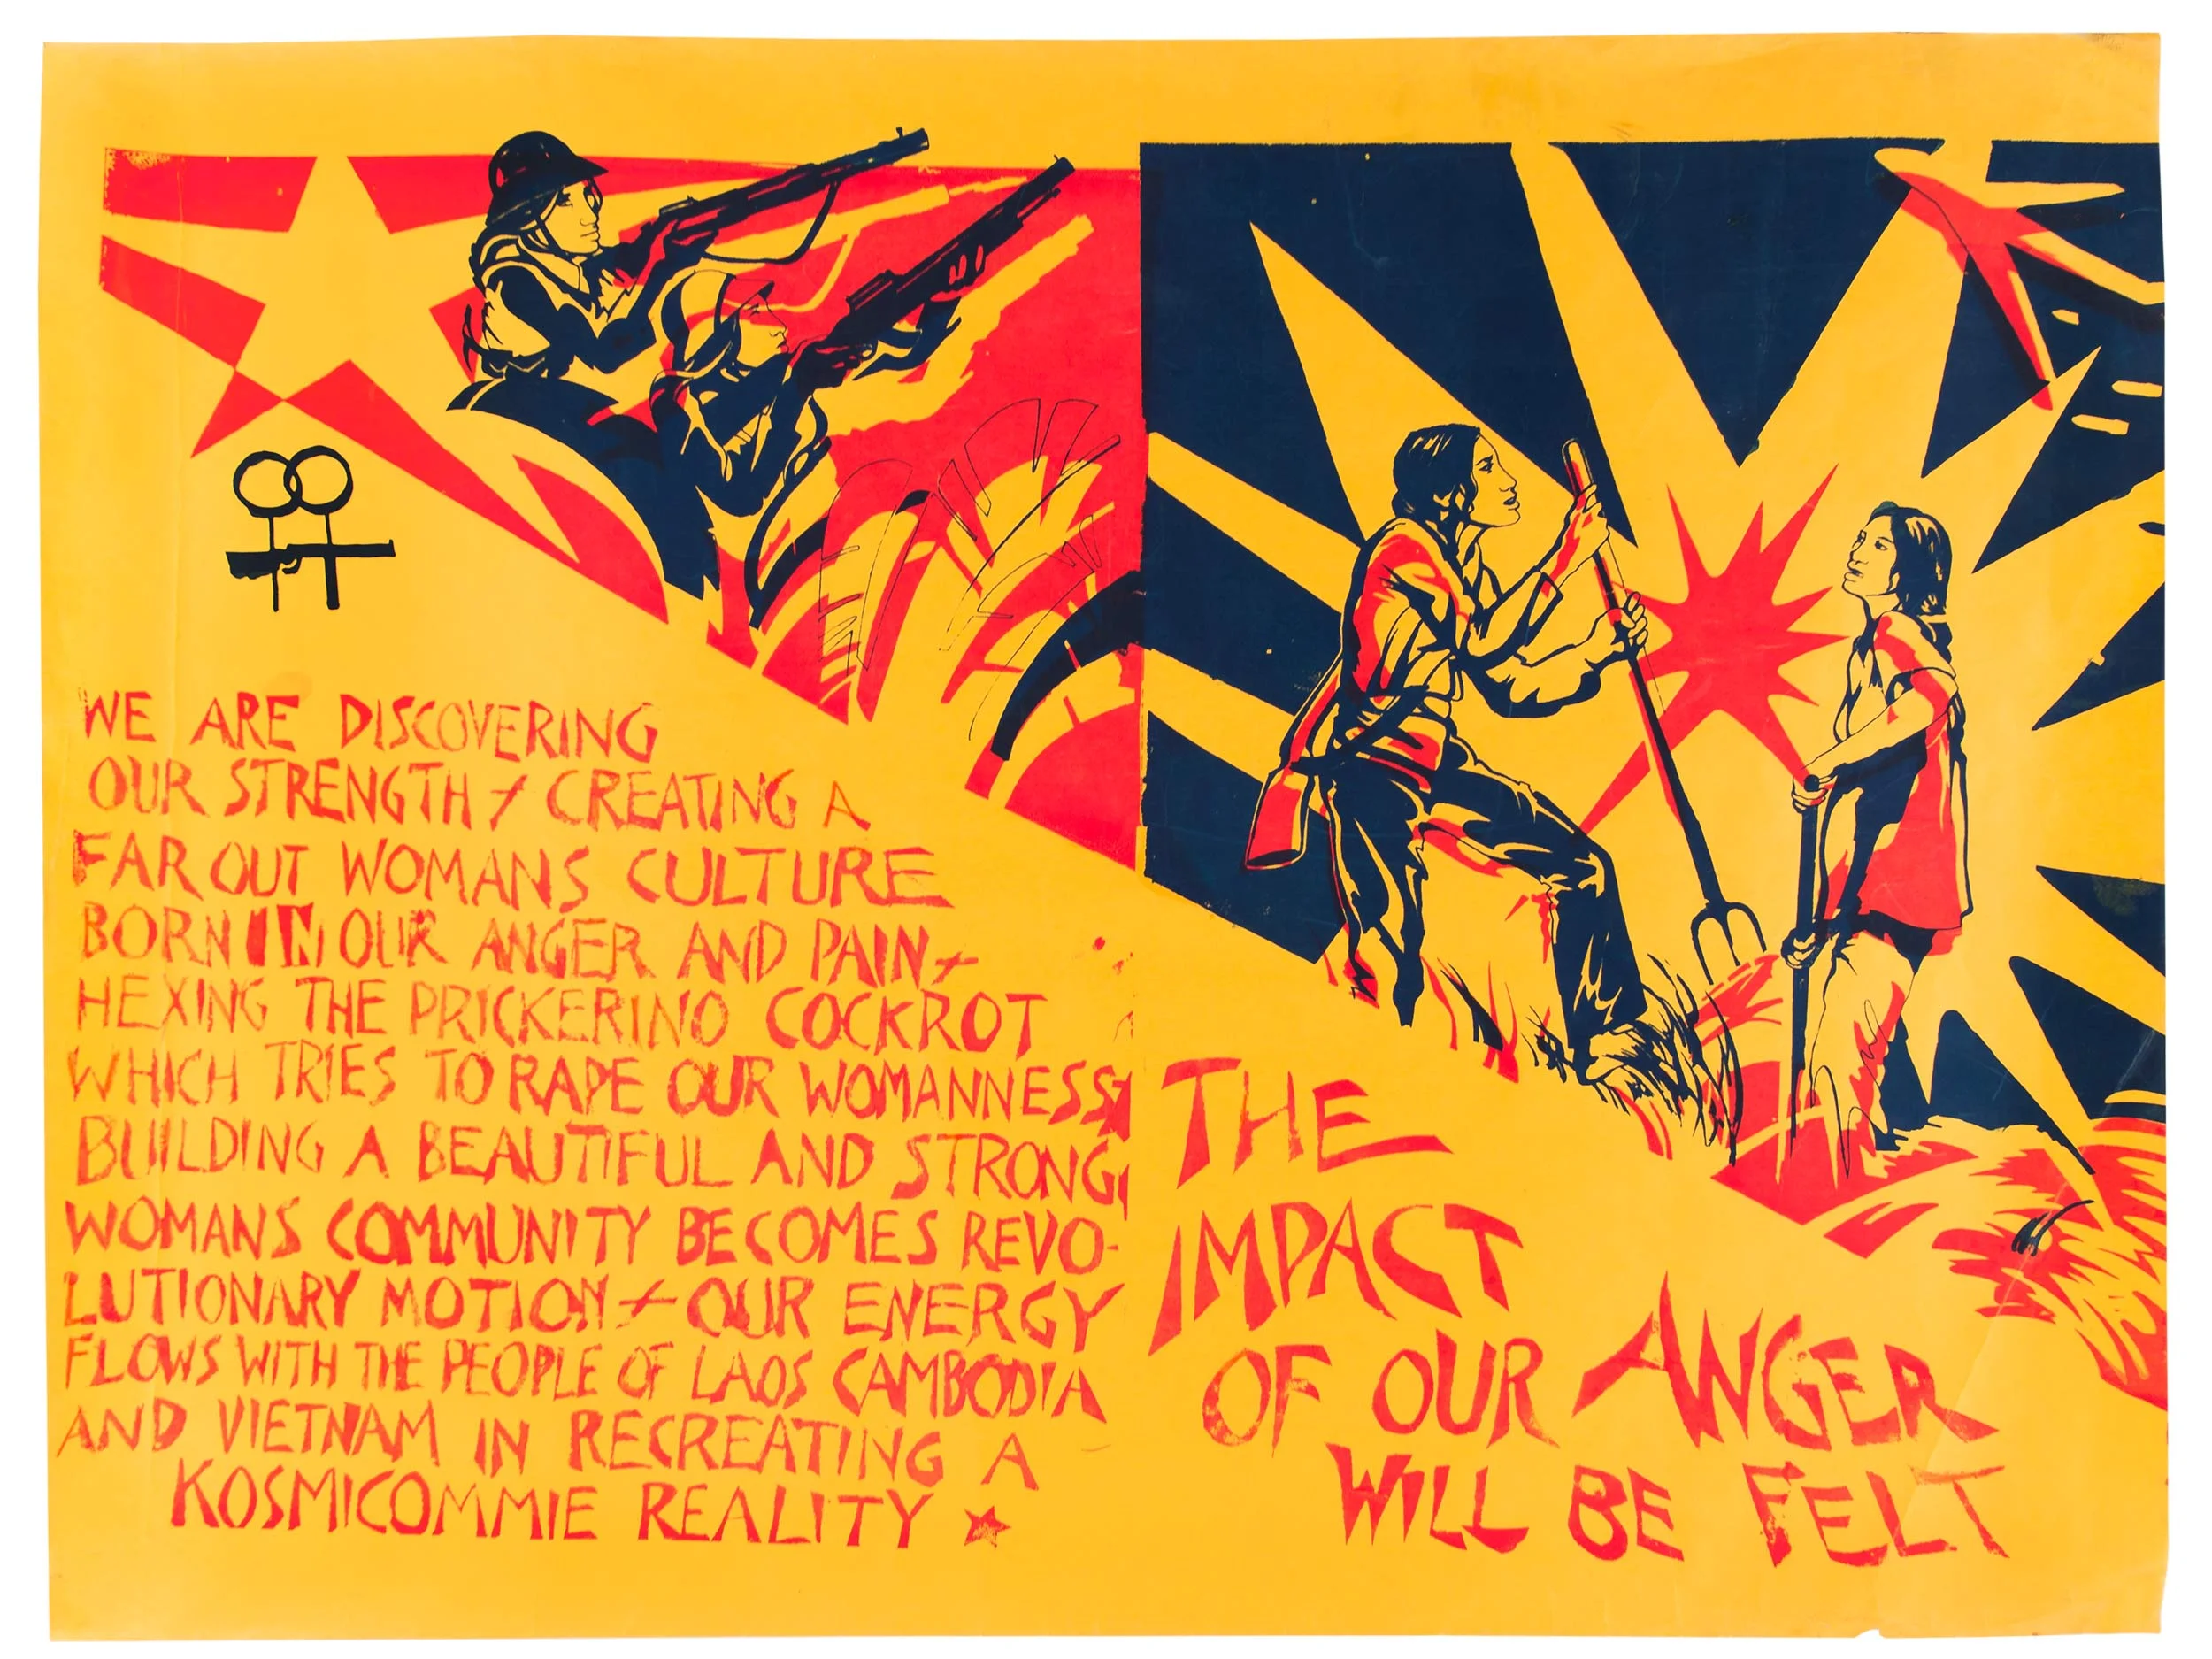 WE ARE DISCOVERING
OUR STRENGTH + CREATING A
FAR OUT WOMANS CULTURE
BORN IN OUR ANGER AND PAIN +
HEXING THE PRICKERINO COCKROT
WHICH TRIES TO RAPE OUR WOMANNESS,
BUILDING A BEAUTIFUL AND STRONG,
WOMANS COMMUNITY BECOMES REVO-
LUTIONARY MOTION + OUR ENERGY
FLOWS WITH THE PEOPLE OF LAOS CAMBODIA
AND VIETNAM IN RECREATING A
KOSMICOMMIE REALITY ★
THE
IMPACT
OF OUR ANGER
WILL BE FELT